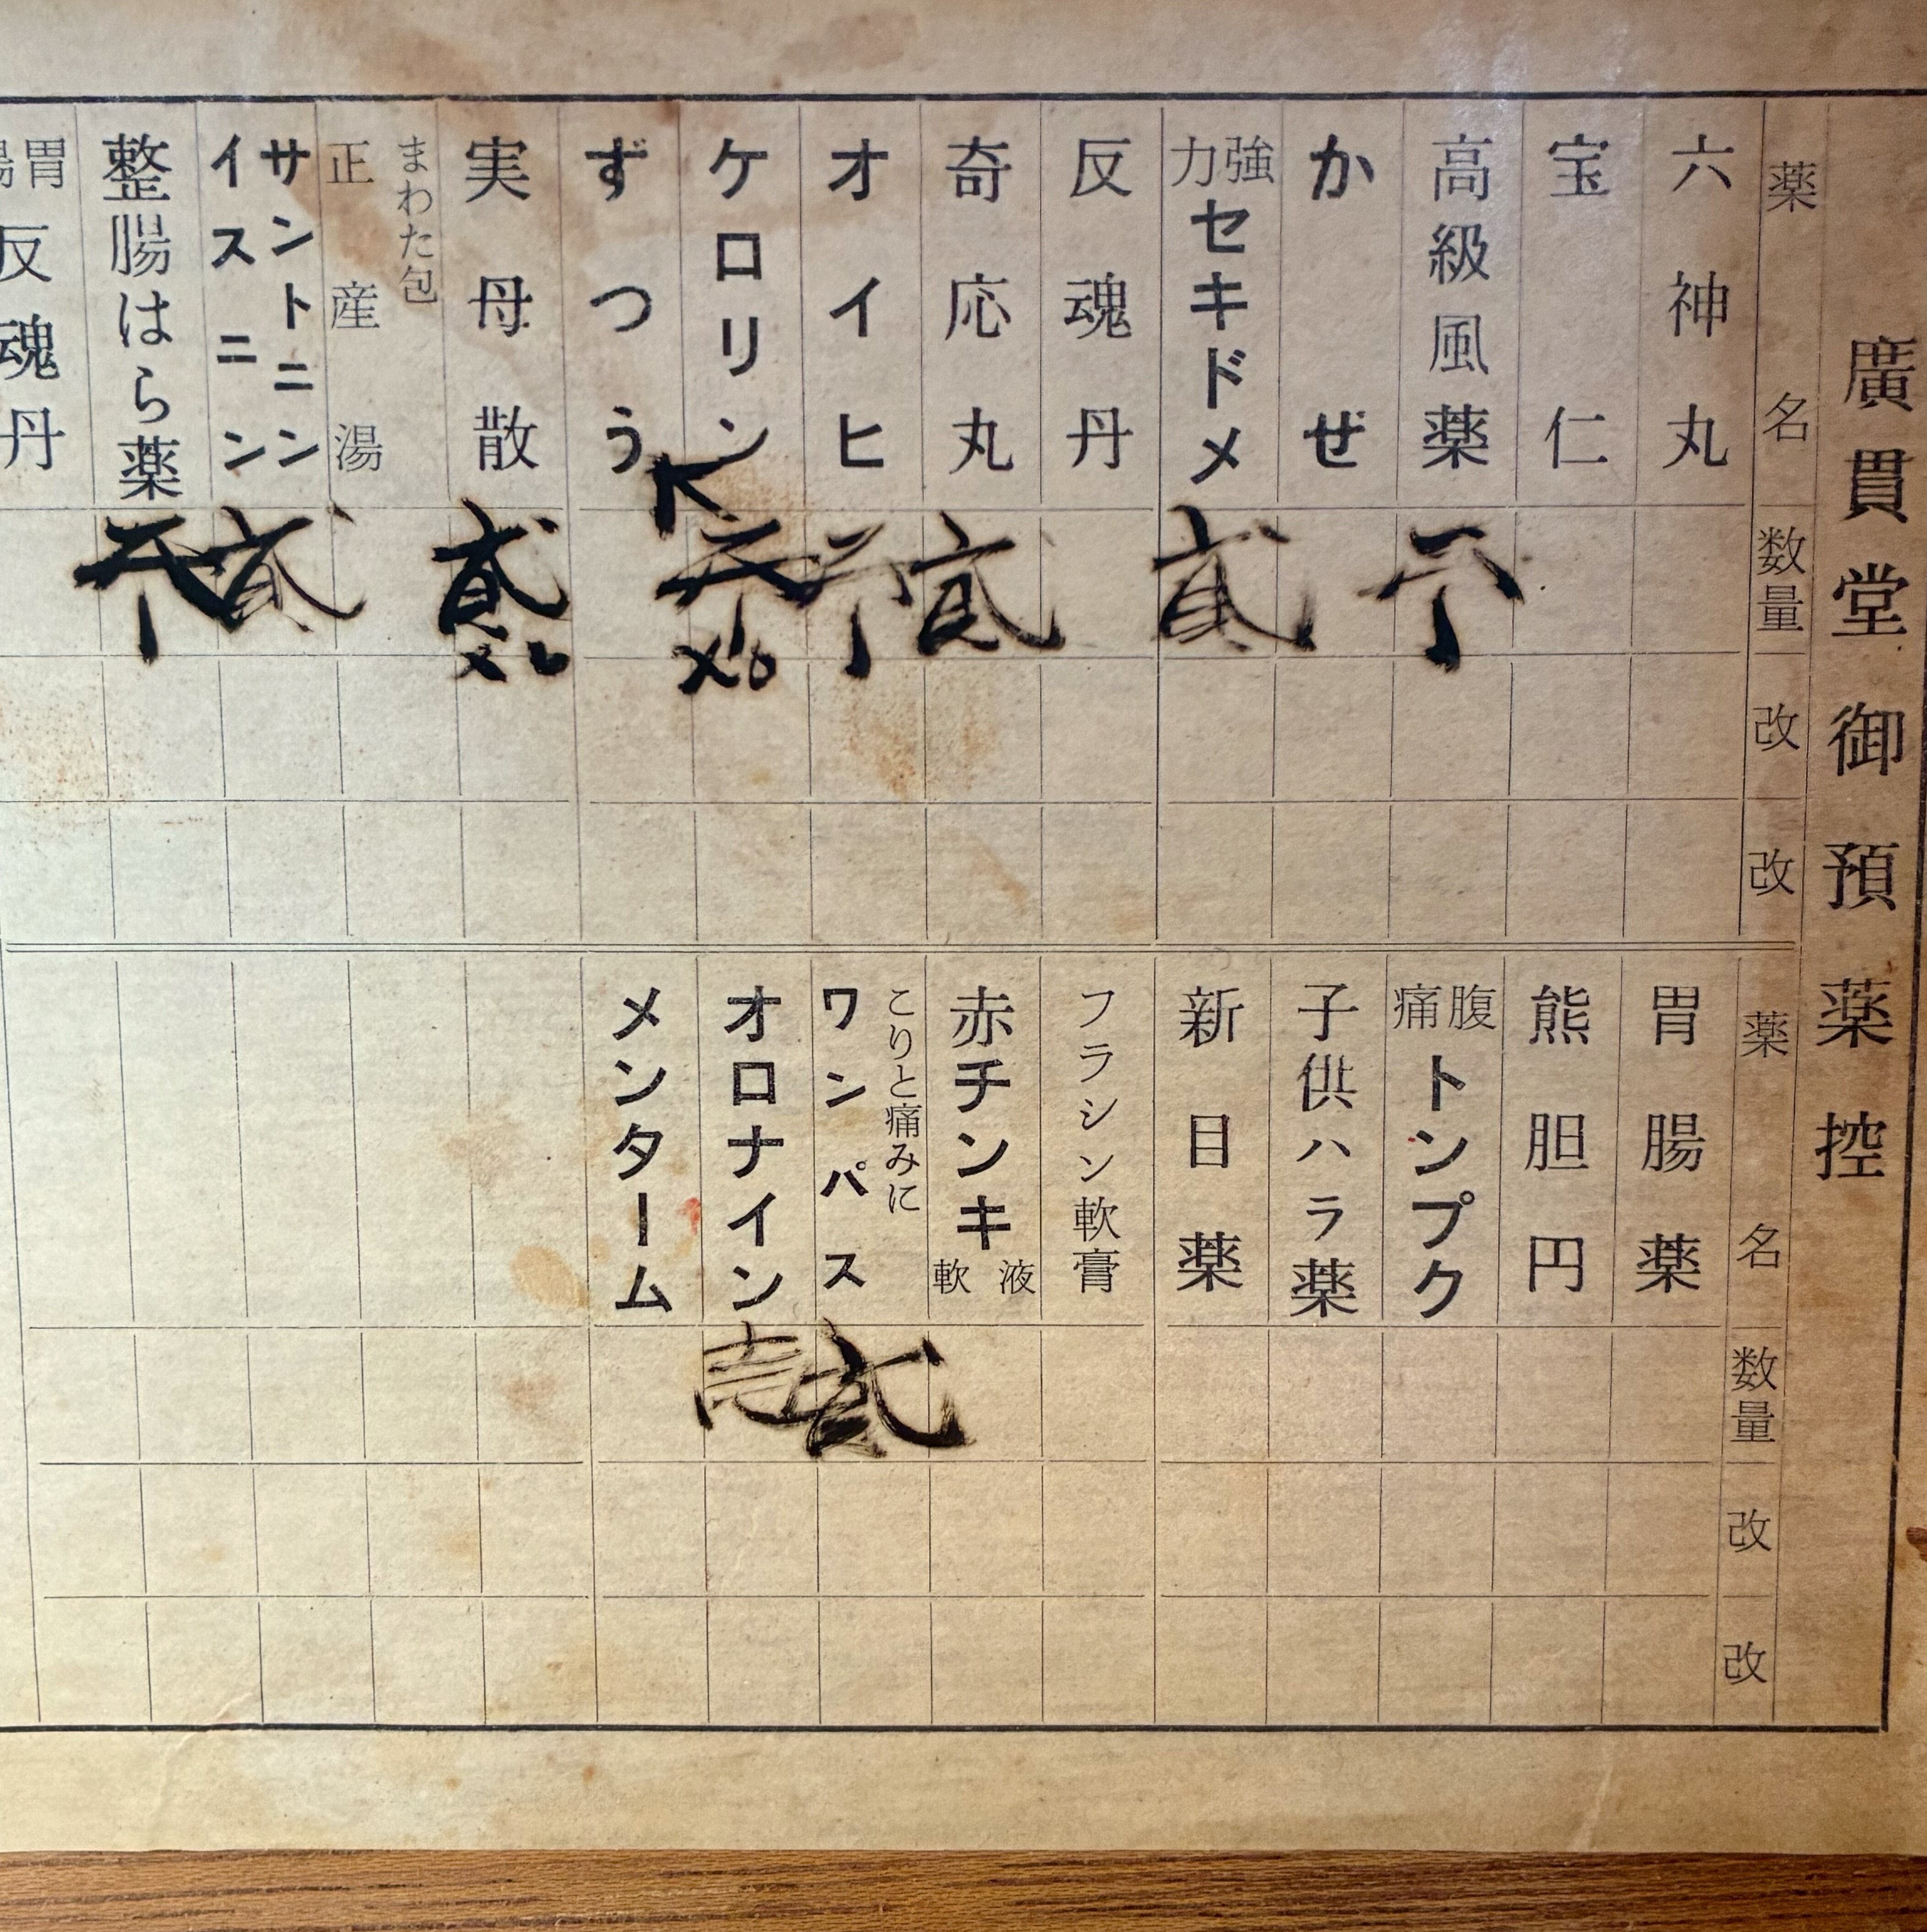 廣貫堂御預薬控
薬名
数量
改
改
六神丸
宝仁
高級風薬
かぜ
強力セキドメ
弐
反魂丹
奇応丸
弐
オイヒ
ケロリン
K
ずつう
実母散
弐
まわた包
正産湯
サントニン
イスニン
弐
整腸はら薬
胃腸反魂丹
薬名
数量
改
改
胃腸薬
熊胆円
腹痛トンプク
子供ハラ薬
新目薬
フラシン軟膏
赤チンキ
液
軟
こりと痛みに
ワンパス
弐
オロナイン
壱
メンターム